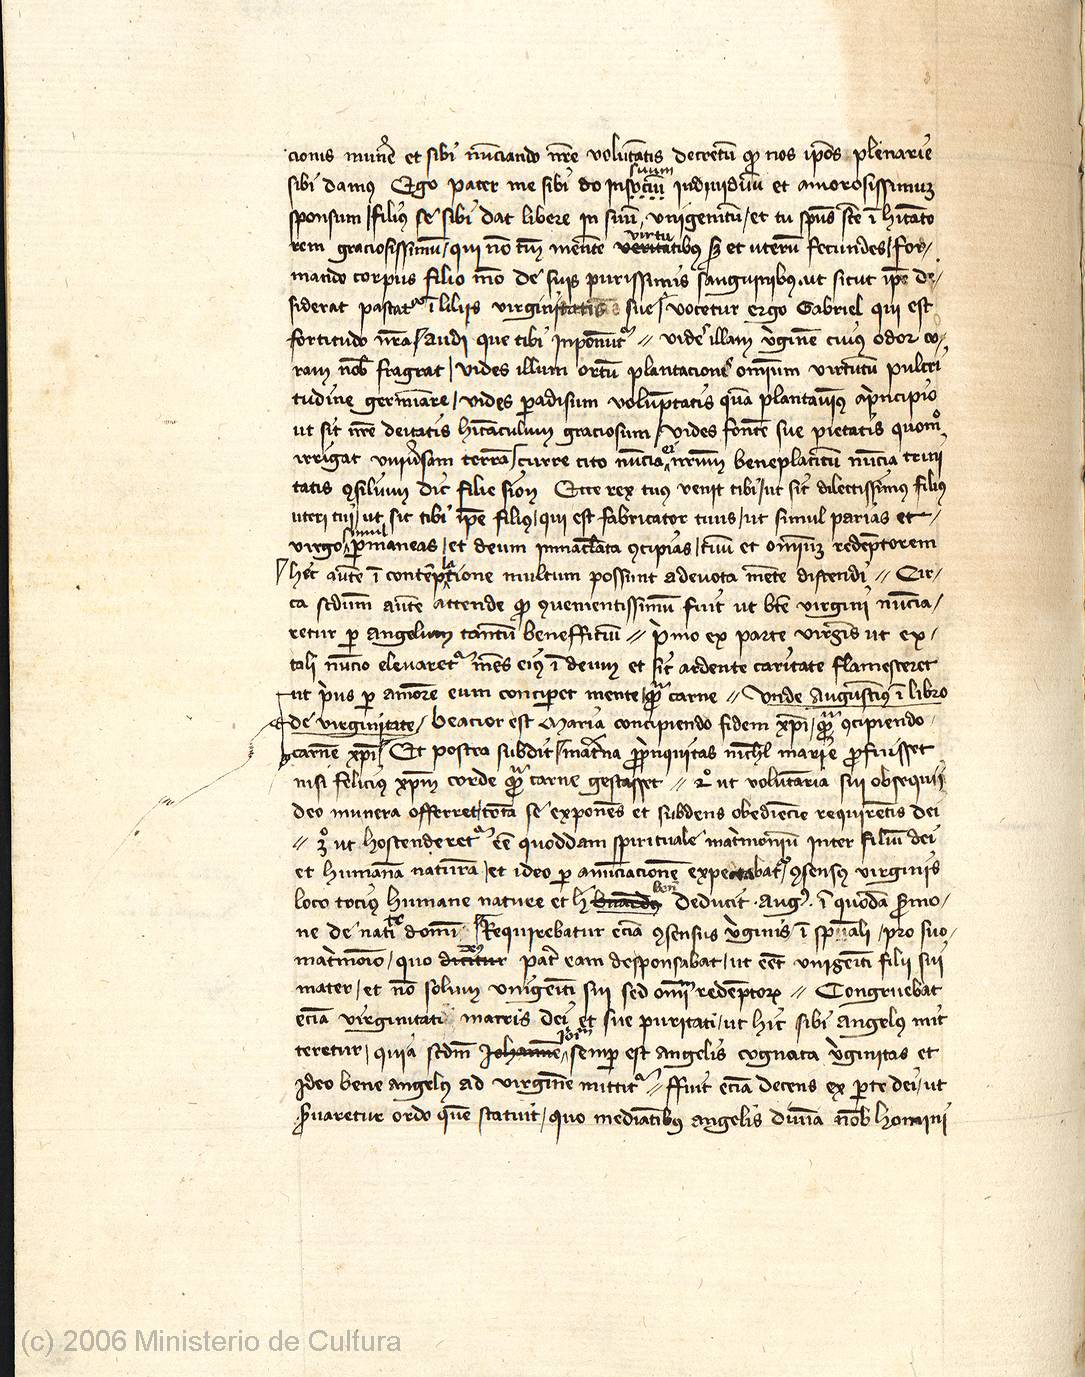 cionis mun̄e et sibi nūciando nr̄e volūtatis decretū qͥ nos ip̄os plenarie
sibi damꝰ Ego pater me sibi do in spōcīū suum indiuiduū et amorosissimuꝫ
sponsum / filiꝰ se sibi dat libere in suū vnigenitū / et tu spūs scē ī hitato
rem graciosissimū / qui nō tm̄ mente veritatibꝰ virtu sꝫ et uterū fecundes / for/
mando corpus filio meo de suis purissimis sanguinibꝰ ut sicut ip̄e de/
siderat pascatᷣ ī liliis virginitatis sue / vocetur ergo Gabriel qui est
fortitudo nr̄a / audi que tibi inponūtᷣ // vide illam v̓ginē cuiꝰ odor co/
ram nob̄ fragrat / vides illum ortū plantacione om̄ium virtutū pulcri
tudine germīare / vides paradisum volūptatis quā plantauimꝰ a principio
ut sit nr̄e deitatis hitaculum graciosum / vides fontē sue pietatis quomᵒ
irrigat vniūsam terrā / curre cito nūcia et nr̄um beneplacitū nūcia trini
tatis ꝯsilium dic filie sion Ecce rex tuꝰ venit tibi / ut sit dilectissimꝰ filiꝰ
uteri tui / ut sit tibi ip̄e filiꝰ / qui est fabricator tuus / ut simul parias et /
virgo simul ꝑmaneas / et deum inmac̄lata ꝯcipias / tuū et om̄iuꝫ redēptorem
hec autē ī contēplatione multum possunt a deuota mēte discendi // Cir/
ca scdum autē attende qͥ ꝯuenientissimū fuit ut btē virgini nūcia/
retur ꝑ angelum tantū beneffitiū // pͥmo ex parte virgīs ut ex/
tali nūcio eleuaretᷣ mēs eiꝰ ī deum et sic ardente caritate flamesceret
ut pͥus ꝑ amorē eum conciperet mente / qͣ carne // vnde Augustīꝰ ī libro
de virginitate / beacior est Maria concipiendo fidem xp̄i / qͣ ꝯcipiendo
carnē xp̄i / Et postea subdit / mat̓na ꝓpinquitas nichl marie ꝓfuisset
nisi felicius xp̄m corde qͣ carne gestasset // 2ᵒ ut voluntaria sui obsequii
deo munera offerret / tota se exponēs et subdens obediēcie requirētis dei
// 3ᵒ ut hostenderetᷣ eē quoddam spirituale mat̓moniū inter filiū dei
et humanā naturā / et ideo ꝑ anūciacionē expectabatᷣ ꝯsensꝰ virginis
loco tociꝰ humane nature et h̓ bnardꝰ ben̄ deducit Augꝰ. ī quodā s̓mo/
ne de nati te domī Requirebatur eciā ꝯsensus v̓ginis ī sp̄uali / pro suo/
mat̓monio / quo dicitur deꝰ pat̓ eam desponsabat / ut eēt vnigeīti filii sui
mater / et nō solum vnigeīti sui sed om̄i redēptoꝝ // Congruebat
eciā virginitati matris dei et sue puritati / ut hic sibi angelꝰ mit
teretur / quia scdm̄ Johannē ioīm semꝑ est angelis cognata v̓ginitas et
ideo bene angelꝰ ad virginē mittitᷣ // ffuit eciā decens ex ꝑte dei / ut
s̓uaretur ordo quē statuit / quo mediātibꝰ angelis diuīa nob̄ homini
(c) 2006 Ministerio de Cultura